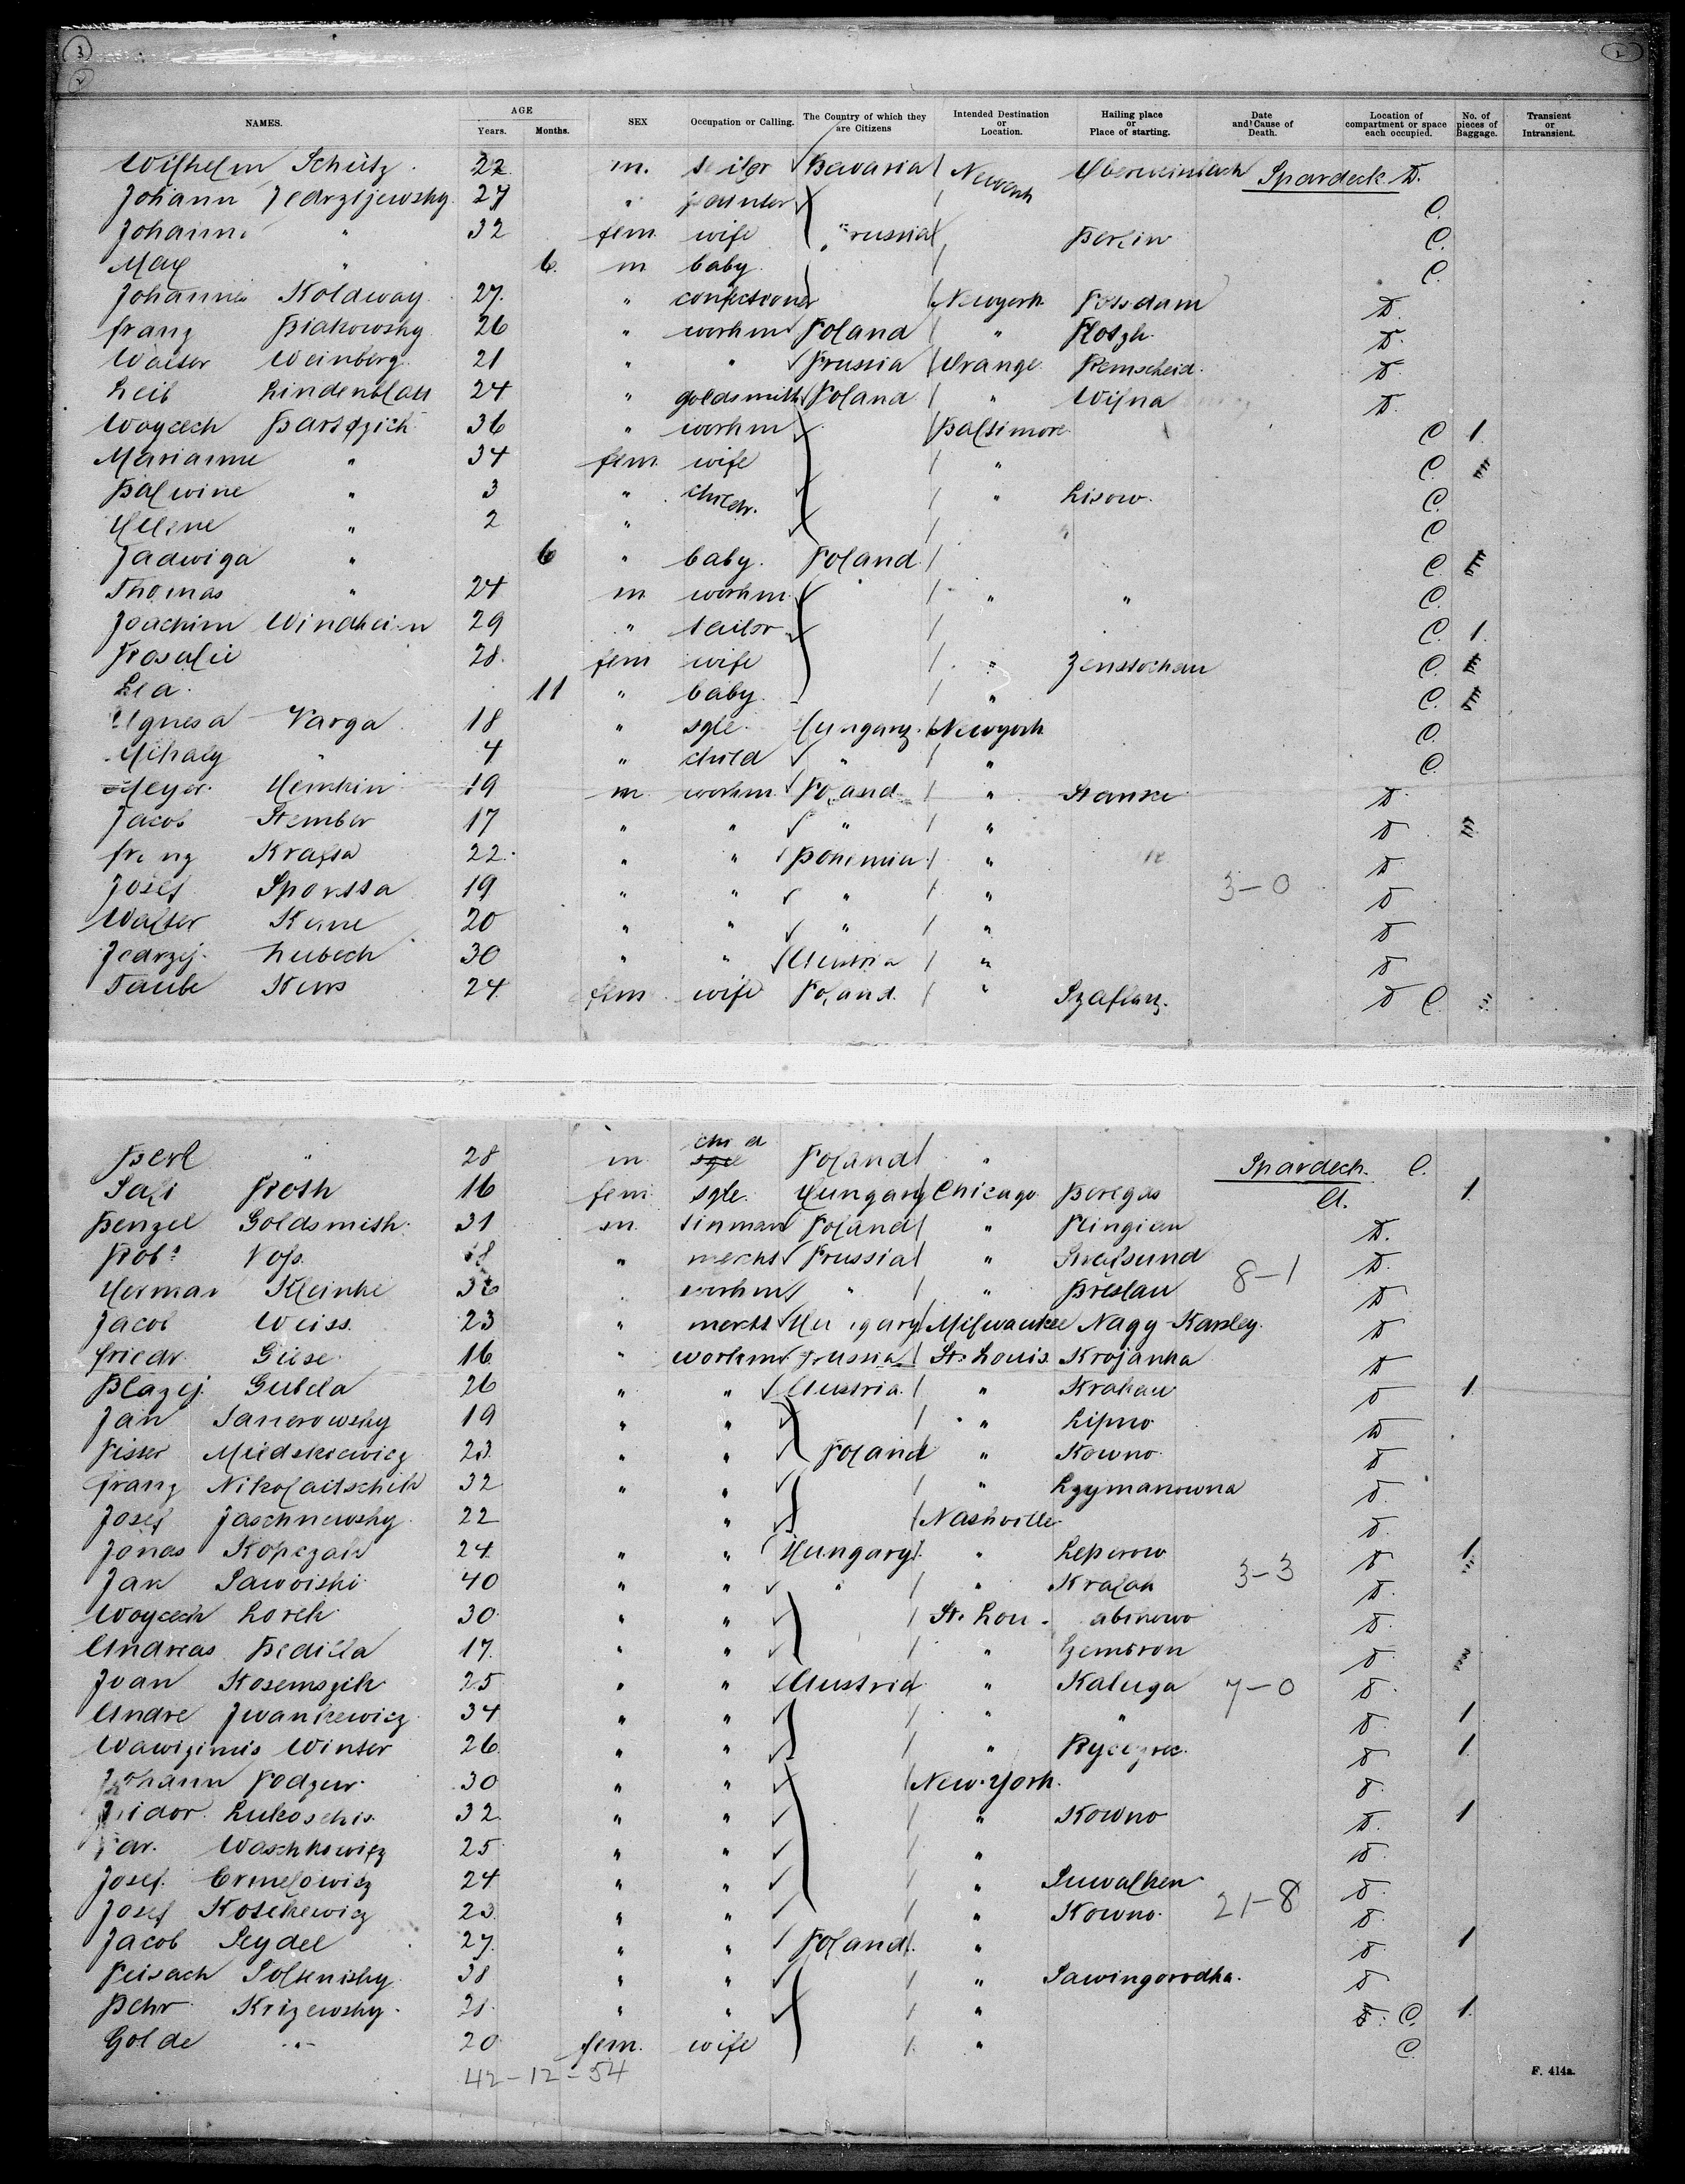 3
2
2
NAMES. AGE Years. Months. SEX Occupation or Calling. The Country of which they are Citizens Intended Destination or Location. Hailing place or Place of starting. Date and Cause of Death. Location of compartment or space each occupied. No. of pieces of Baggage. Transient or Intransient.
Wilhelm Schütz 22 m. Bavaria Newark Spardeck D.
Johann Jedrzejewsky 27 " painter C.
Johanne " 32 fem wife Prussia Berlin C.
Max " 6. m baby C.
Johannes Koldway 27. " confectioner Newyork Potsdam D.
Franz Biakowsky 26 " workm Poland " Plotzk D.
Walter Weinberg 21 " " Prussia Orange Remscheid. D.
Leib Lindenblatt 24 " goldsmith Poland " Wilna D.
Woycech 36 " workm Baltimore C 1.
Marianne " 34 fem wife " C.
Balwine " 3 " childr. " Lisow. C.
Helene " 2 " " C
Jadwiga " 6 " baby. Poland C.
Thomas " 24 m workm " " C.
Joachim Windheim 29 " tailor C. 1.
Rosalie 28. fem wife " Zenstochau C.
Lea. 11 " baby. " C.
Agnesa Varga 18 " sgle. Hungary. Newyork C.
Mihaly " 4 " child " " C.
Meyer Hemkin 19 m workm Poland " D.
Jacob Stember 17 " " " " D
Franz Kralsa 22. " " Bohemia " D
Josef 19 " " " " 3-0 D
Walter 20 " " " " D
Jedrzej. Lubech 30 " " Austria " D
Taube Kurs 24. fem wife Poland. " D C.
Berl " 28 m child sgle Poland " Spardeck. C.
Sali Roth 16 fem sgle. Hungary Chicago Beregas A. 1.
Benzel Goldsmith. 31 m. tinman Poland " D.
Robt Voss. 18 " mercht Prussia " Stralsund 8-1 D.
Herman Kleinke 36 workm " " Breslau D
Jacob Weiss. 23 " mercht Hungary Milwaukee Nagy-Karoley. D
Friedr. Giese. 16 " workm Prussia St. Louis. Krojanka D
Blazej. Gubela 26 " " Austria. " Krakau D 1.
Jan Sanerowsky 19 " " " Lipno D
Pisser Miedskiewicz 23. " " Poland " Kowno. D
Franz Nikolaitschik 32 " " " D.
Josef Jaschnewsky. 22 " Nashville D.
Jonas Kopczak 24. " " Hungary " D 1.
Jan Sawoiski 40 " " " " 3-3 D.
Woycech Lorek 30 " " St. Lou D.
Andreas Bedilla 17. " " " D.
Ivan 25 " " Austria " Kaluga 7-0 D.
Andre Iwankewicz 34 " " " " D. 1
Winter 26 " " " D 1.
Johann Podzur. 30 " " New-York. D.
Isidor Lukoschis. 32 " " " Kowno D. 1
Waschkowitz 25 " " " D.
Josef. Ermelowicz 24 " " " Suwalken D.
Josef Koschewicz 23. " " " Kowno. 21-8 D.
Jacob Seydel 27. " " Poland " D. 1
Peisach 38 " " " Sawingorodka. D
Behr Krizewsky. 21. " " " D. C. 1.
Golde " 20 fem. wife " C
42-12-54
F. 414a.